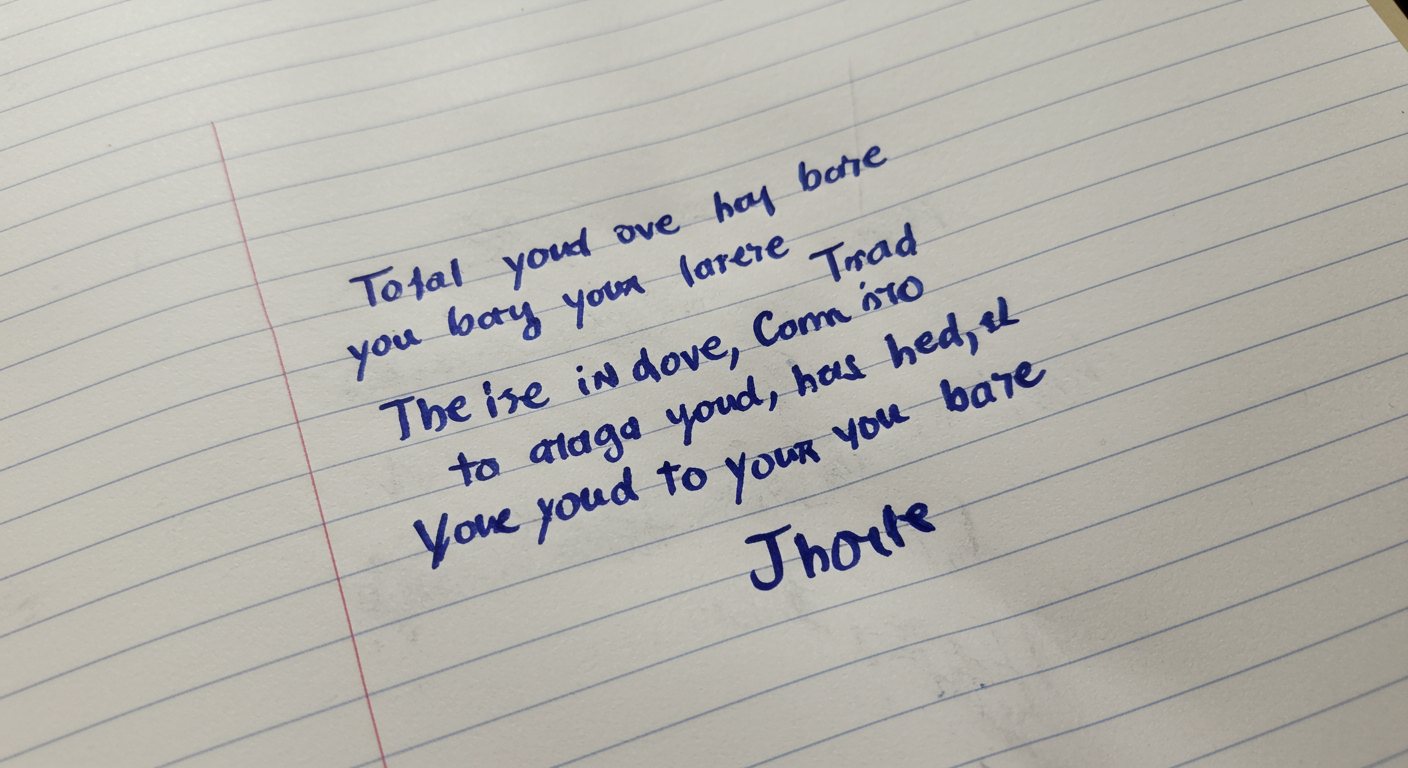 Total youd ove hay bare
you bary your larere Trad
The ire in dove, Com
to alaga youd, has hed,
Your youd to your you bare
Jhorte